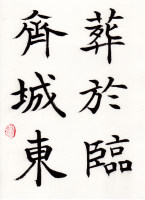 葬於臨
齊城東